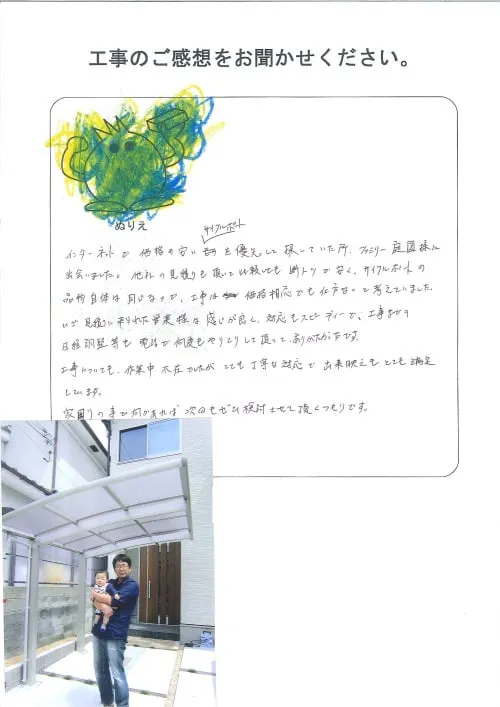 工事のご感想をお聞かせください。
ぬりえ
サイクルポート
インターネットで価格の安い を優先して探していた所、ファミリー庭園様に
出会いました。他社の見積りも頂して比較しても断トツで安く、サイクルポートの
品物自体は同じなので、工事は 価格相応でも仕方ないと考えていました。
いざ見積に来られた営業様は感じが良く、対応もスピーディーで、工事までの
日程調整等も電話で何度もやりとりして頂いて、ありがたかったです。
工事についても、作業中不在でしたが とても丁寧な対応で 出来映えもとても満足
しています。
家周りの事で何かあれば 次回もぜひ検討させて頂くつもりです。